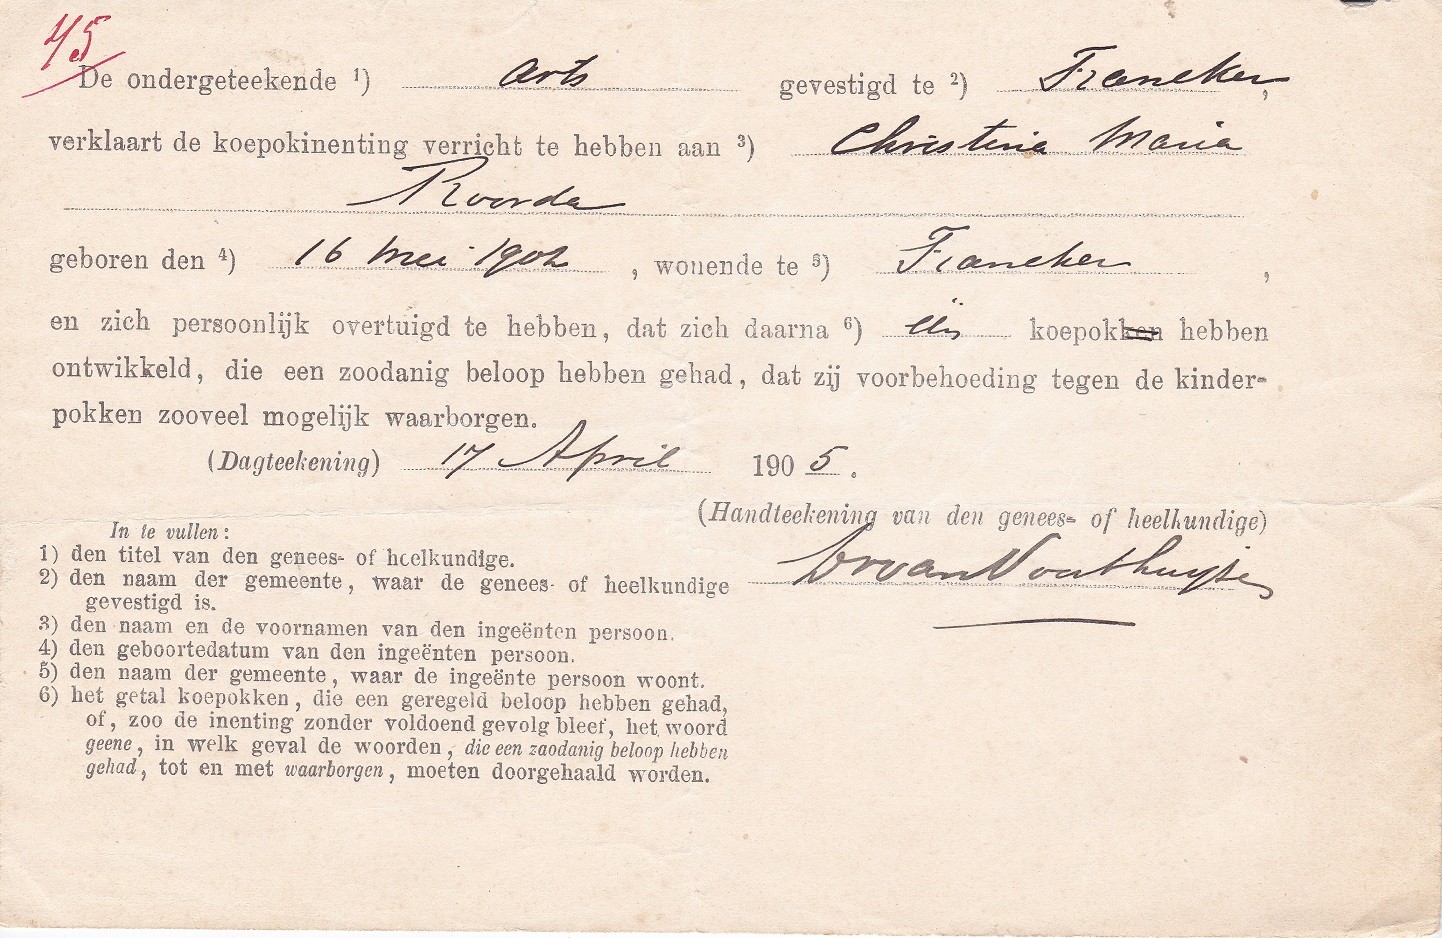 45
De ondergeteekende 1) arts gevestigd te 2) Franeker,
verklaart de koepokinenting verricht te hebben aan 3) Christina Maria
Roorda
geboren den 4) 16 Mei 1902, wonende te 5) Franeker,
en zich persoonlijk overtuigd te hebben, dat zich daarna 6) één koepokken hebben
ontwikkeld, die een zoodanig beloop hebben gehad, dat zij voorbehoeding tegen de kinder-
pokken zooveel mogelijk waarborgen.
(Dagteekening) 17 April 1905.
(Handteekening van den genees- of heelkundige)
van Voorthuysen
In te vullen:
1) den titel van den genees- of heelkundige.
2) den naam der gemeente, waar de genees- of heelkundige
gevestigd is.
3) den naam en de voornamen van den ingeënten persoon.
4) den geboortedatum van den ingeënten persoon.
5) den naam der gemeente, waar de ingeënte persoon woont.
6) het getal koepokken, die een geregeld beloop hebben gehad,
of, zoo de inenting zonder voldoend gevolg bleef, het woord
geene, in welk geval de woorden, die een zaodanig beloop hebben
gehad, tot en met waarborgen, moeten doorgehaald worden.